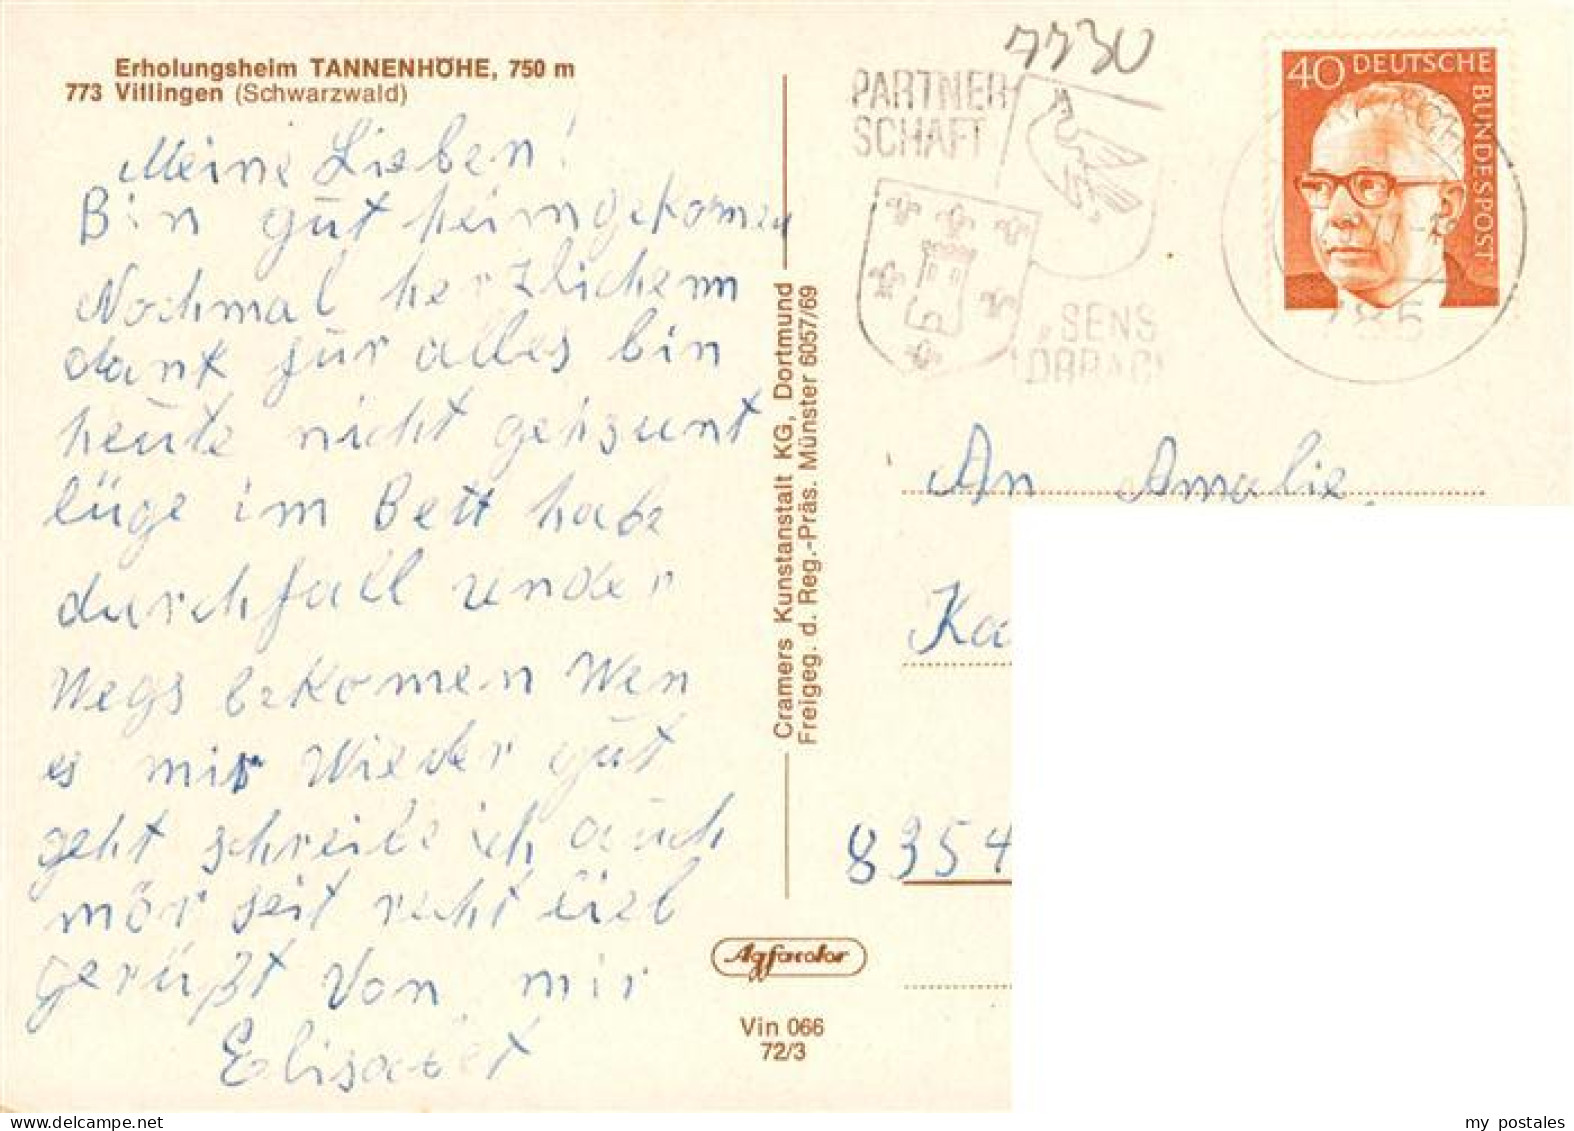 Erholungsheim TANNENHÖHE, 750 m
773 Villingen (Schwarzwald)
Meine Lieben!
Bin gut heimgekomen
Nochmal herzlichenn
dank für alles bin
heute nicht gehsunt
lüge im Bett habe
durchfall under
Wegs bekomen Wen
es mir Wieder gut
geht schreibe ich auch
mör seit recht lieb
gerüßt Von mir
Elisabet
Cramers Kunstanstalt KG, Dortmund
Freigeg. d. Reg.-Präs. Münster 6057/69
Agfacolor
Vin 066
72/3
7730
PARTNER-
SCHAFT
SENS
40 DEUTSCHE
BUNDESPOST
785
An Amalie
Ka
8354
my postales